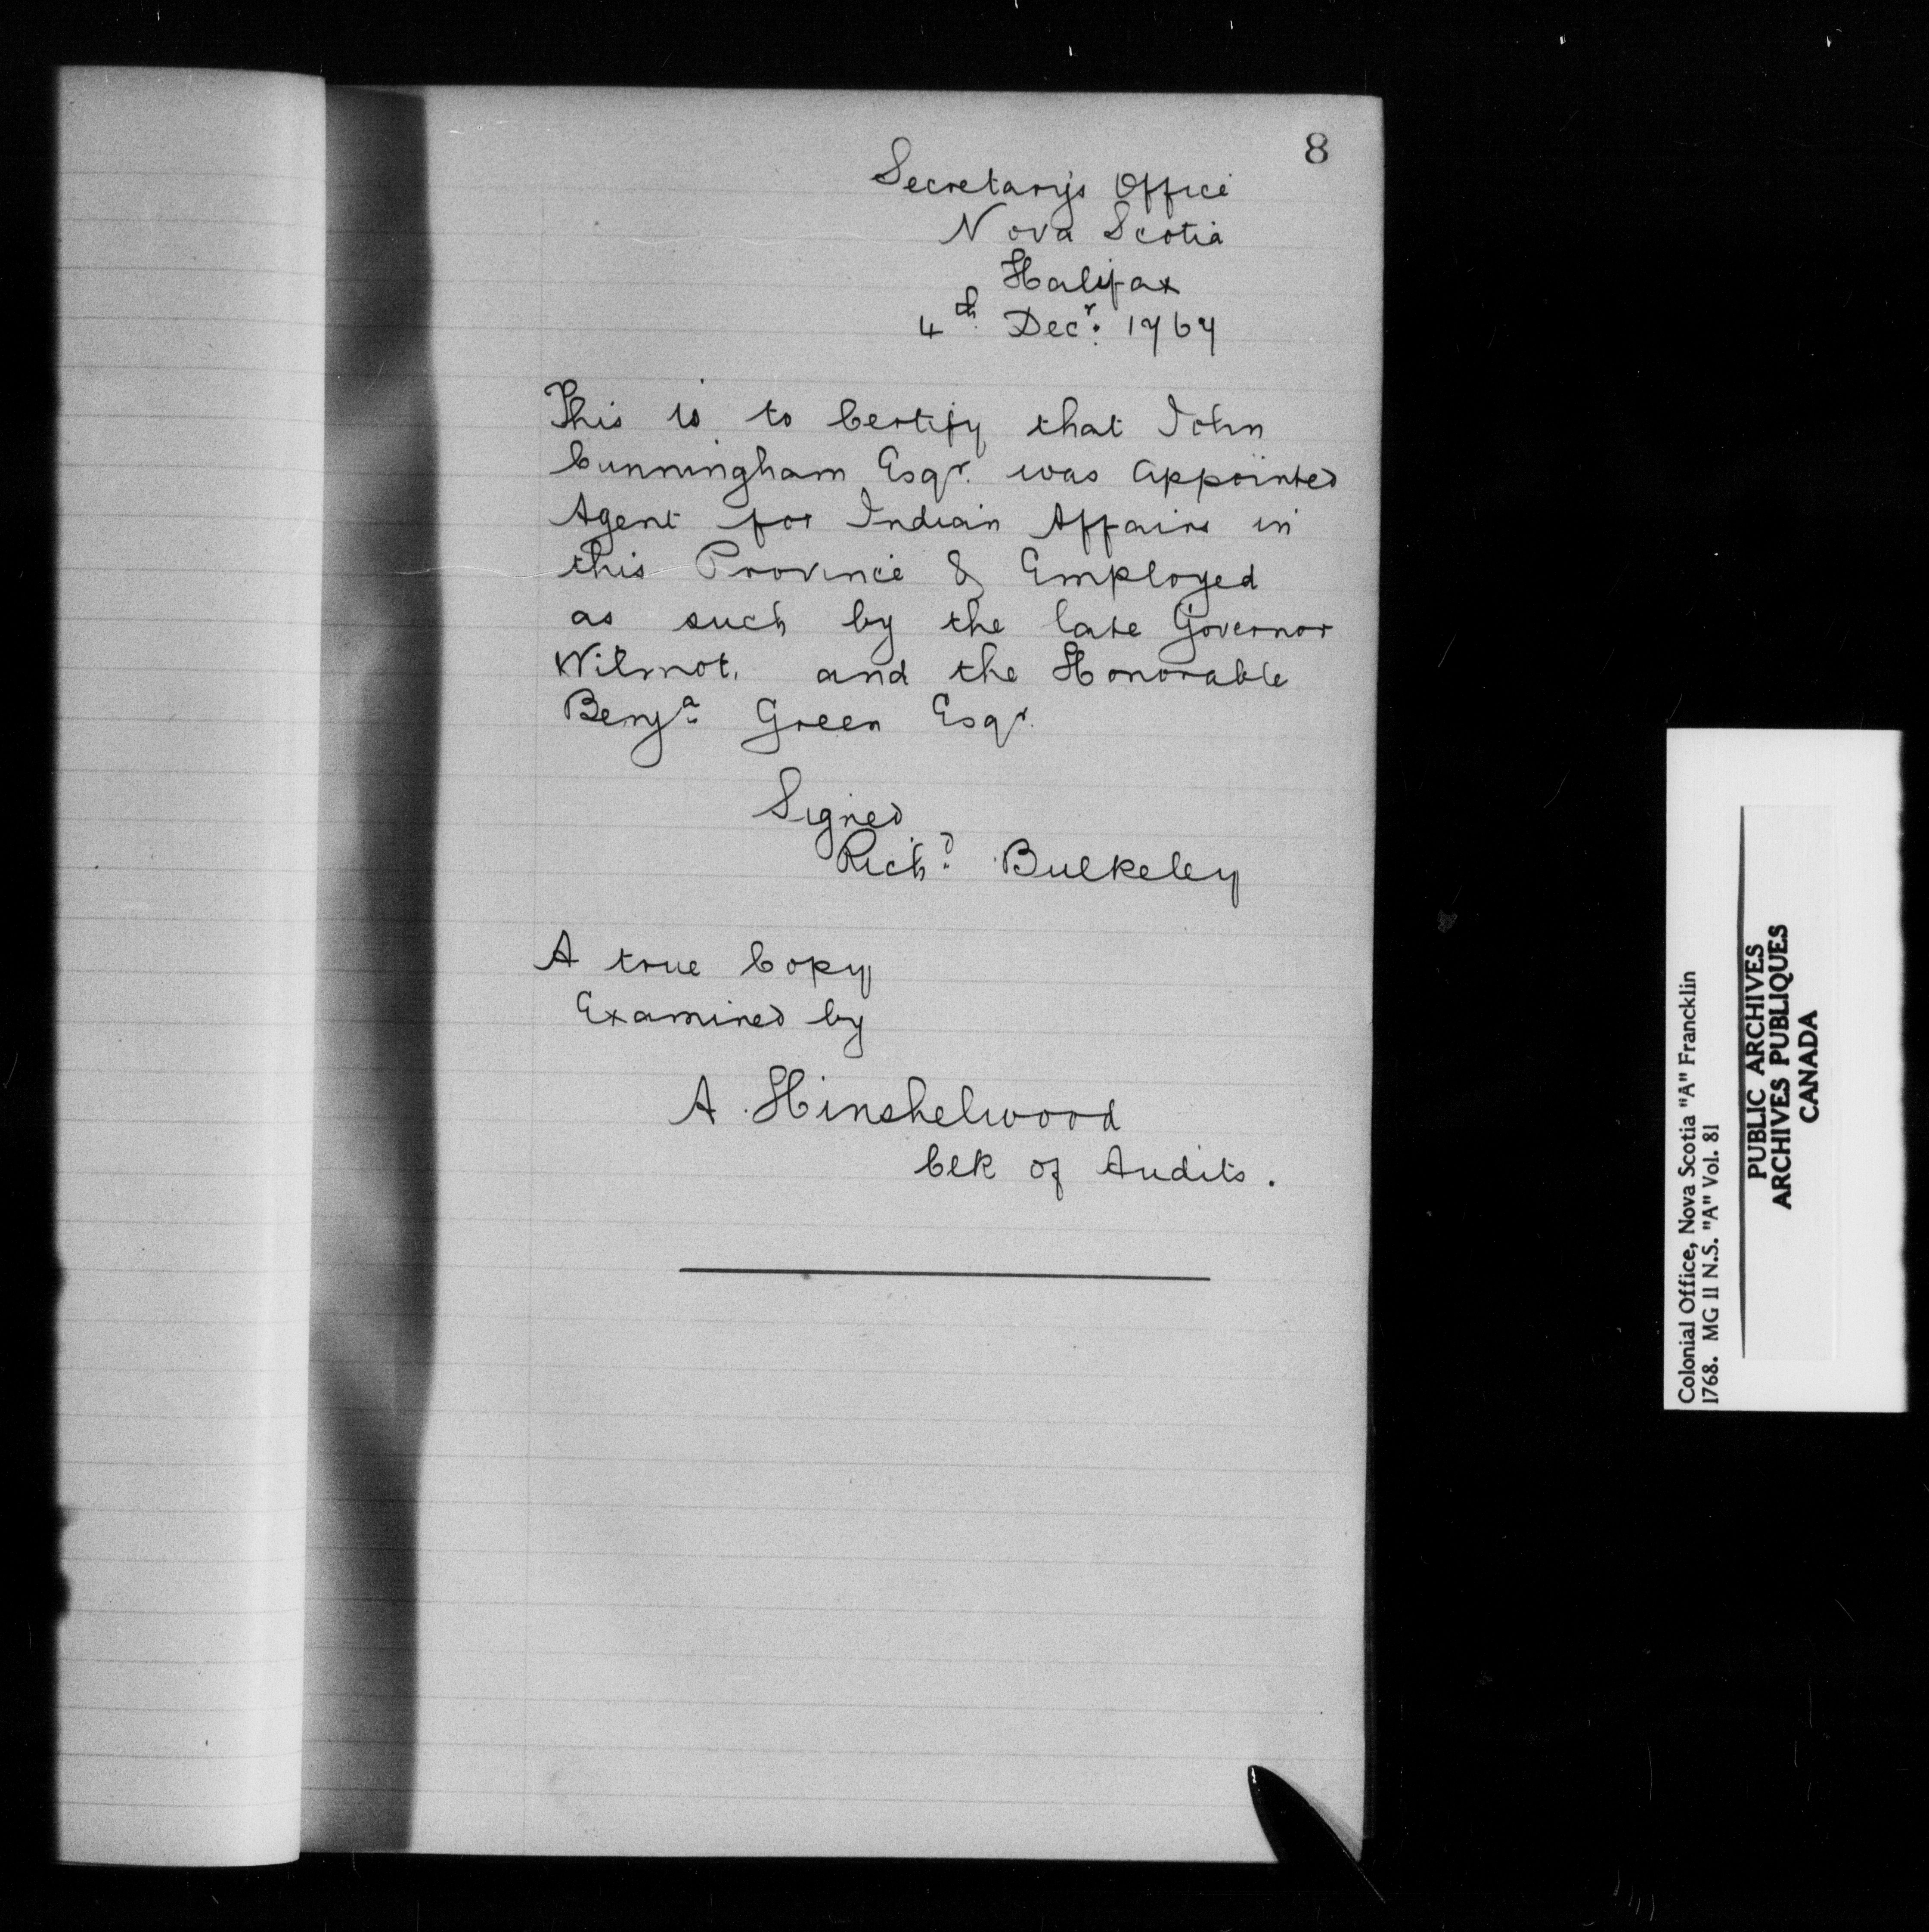 8
Secretary's Office
Nova Scotia
Halifax
4th Decr. 1767
This is to Certify that John
Cunningham Esqr. was Appointed
Agent for Indian Affairs in
this Province & Employed
as such by the late Governor
Wilmot. and the Honorable
Benja. Green Esqr.
Signed
Richd. Bulkeley
A true Copy
Examined by
A. Hinshelwood
Clk of Audits.
Colonial Office, Nova Scotia "A" Francklin
1768. MG 11 N.S. "A" Vol. 81
PUBLIC ARCHIVES
ARCHIVES PUBLIQUES
CANADA